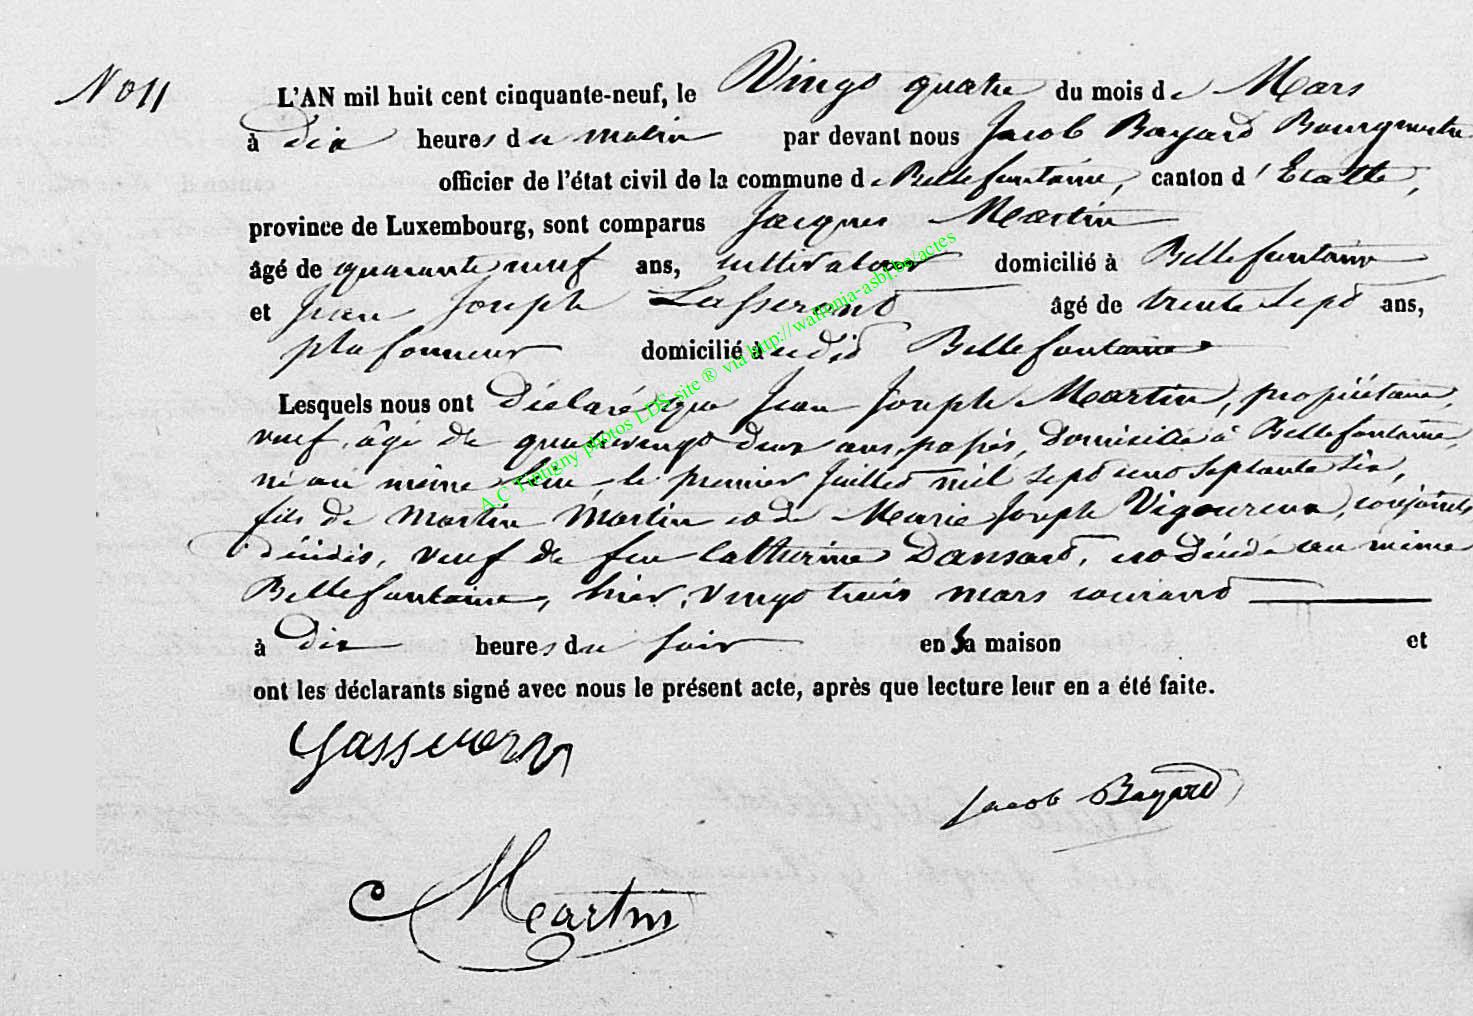 N° 11
L'AN mil huit cent cinquante-neuf, le Vingt quatre du mois de Mars
à dix heures du matin par devant nous Jacob Bayard Bourgmestre
officier de l'état civil de la commune de Bellefontaine, canton d'Etalle,
province de Luxembourg, sont comparus Jacques Martin
âgé de quarante neuf ans, cultivateur domicilié à Bellefontaine
et Jean Joseph âgé de trente sept ans,
plafonneur domicilié audit Bellefontaine
Lesquels nous ont déclaré que Jean Joseph Martin, propriétaire,
veuf, âgé de quatrevingt deux ans passés, domicilié à Bellefontaine,
né au même lieu, le premier Juillet mil sept cent septante six,
fils de Martin Martin et de Marie Joseph Vigoureux, conjoints
décédés, veuf de feu Catherine Dansard, est décédé au même
Bellefontaine, hier, vingt trois mars courant
à dix heures du soir en Sa maison et
ont les déclarants signé avec nous le présent acte, après que lecture leur en a été faite.
Jacob Bayard
Martin
A.C Tintigny photos LDS site ® via http://wallonia-asbl.be/actes